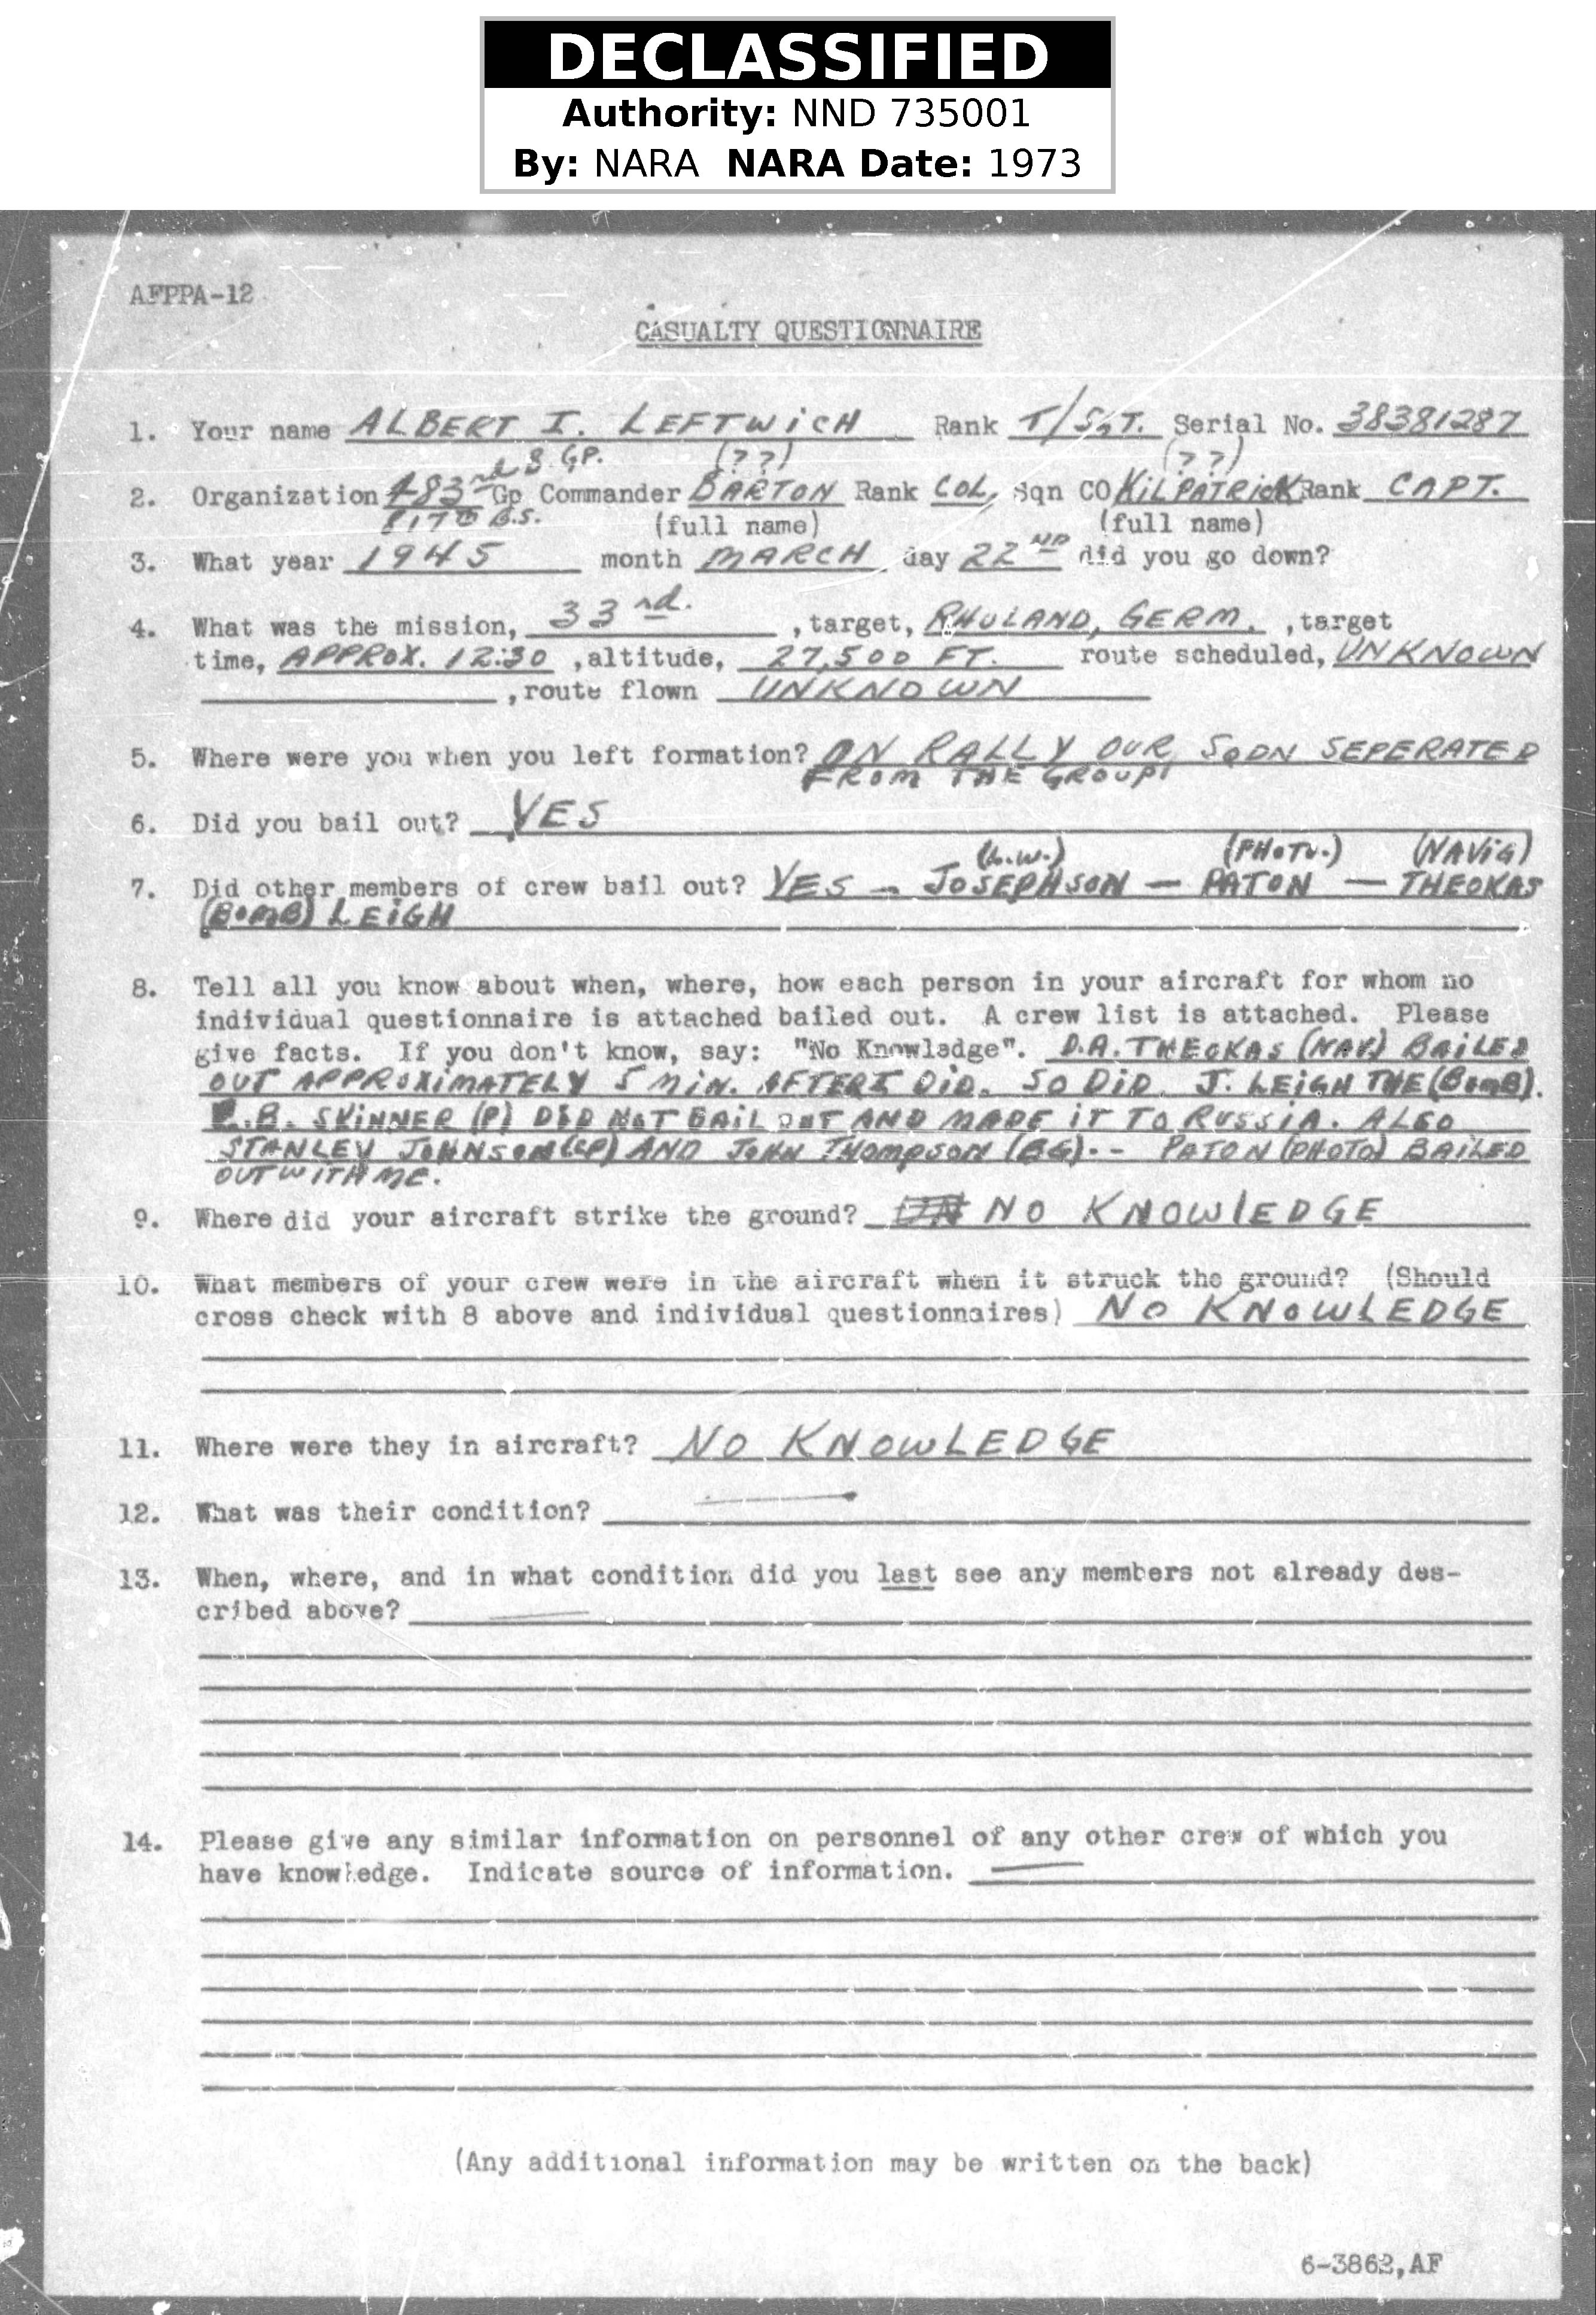 DECLASSIFIED
Authority: NND 735001
By: NARA NARA Date: 1973
AFPPA-12
CASUALTY QUESTIONNAIRE
1. Your name ALBERT I. LEFTWICH Rank T/SGT. Serial No. 38381287
rd B. GP. (??) (??)
2. Organization 483 Gp Commander BARTON Rank COL, Sqn CO KILPATRICK Rank CAPT.
817th B.S. (full name) (full name)
3. What year 1945 month MARCH day 22ND did you go down?
4. What was the mission, 33rd. , target, RHULAND, GERM. , target
time, APPROX. 12:30 , altitude, 27,500 FT. route scheduled, UNKNOWN
, route flown UNKNOWN
5. Where were you when you left formation? ON RALLY OUR SQDN SEPERATED
FROM THE GROUP.
6. Did you bail out? YES
(PHOTO.) (NAVIG)
7. Did other members of crew bail out? YES - JOSEPHSON - PATON - THEOKAS
(BOMB) LEIGH
8. Tell all you know about when, where, how each person in your aircraft for whom no
individual questionnaire is attached bailed out. A crew list is attached. Please
give facts. If you don't know, say: "No Knowladge". D.A. THEOKAS (NAV.) BAILED
OUT APPROXIMATELY 5 MIN. AFTER I DID. SO DID J. LEIGH THE (BOMB).
B. SKINNER (P) DID NOT BAIL OUT AND MADE IT TO RUSSIA. ALSO
STANLEY JOHNSON (CP) AND JOHN THOMPSON (BG). - PATON (PHOTO) BAILED
OUT WITH ME.
9. Where did your aircraft strike the ground? NO KNOWLEDGE
10. What members of your crew were in the aircraft when it struck the ground? (Should
cross check with 8 above and individual questionnaires) NO KNOWLEDGE
11. Where were they in aircraft? NO KNOWLEDGE
12. What was their condition?
13. When, where, and in what condition did you last see any members not already des-
cribed above?
14. Please give any similar information on personnel of any other crew of which you
have knowledge. Indicate source of information.
(Any additional information may be written on the back)
6-3862,AF